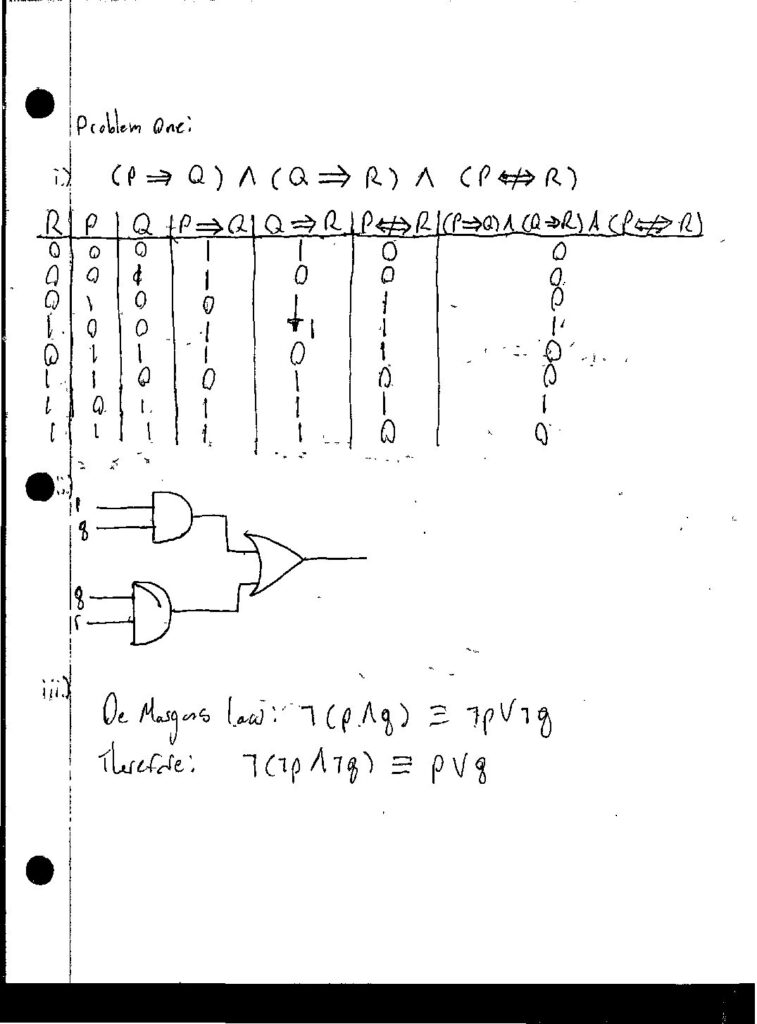 Problem One:
i.) (P ⇒ Q) ∧ (Q ⇒ R) ∧ (P ⇎ R)
R | P | Q | P ⇒ Q | Q ⇒ R | P ⇎ R | (P⇒Q) ∧ (Q⇒R) ∧ (P ⇎ R)
0 | 0 | 0 | 1 | 1 | 0 | 0
0 | 0 | 1 | 1 | 0 | 0 | 0
0 | 1 | 0 | 0 | 1 | 1 | 0
1 | 0 | 0 | 1 | 1 | 1 | 1
0 | 1 | 1 | 1 | 0 | 1 | 0
1 | 1 | 0 | 0 | 1 | 0 | 0
1 | 0 | 1 | 1 | 1 | 1 | 1
1 | 1 | 1 | 1 | 1 | 0 | 0
ii.)
q
q
r
iii.)
De Morgans law: ¬(p∧q) ≡ ¬p∨¬q
Therefore: ¬(¬p∧¬q) ≡ p∨q